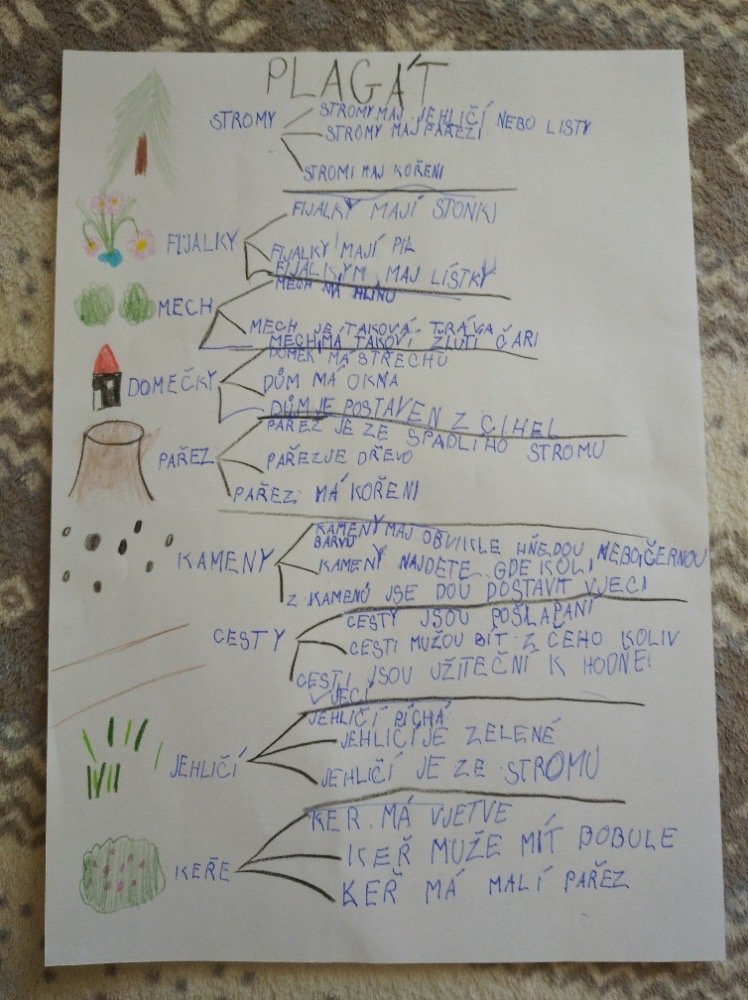 PLAGÁT
STROMY
STROMY MAJ JEHLIČÍ NEBO LISTY
STROMY MAJ PAŘEZI
STROMI MAJ KOŘENI
FIJALKY
FIJALKY MAJÍ STONKI
FIJALKY MAJÍ PIL
FIJALKYM MAJ LÍSTKY
MECH
MECH MÁ HLÍNU
MECH JE TAKOVÁ TRÁVA
MECH MÁ TAKOVÍ ŽLUTÍ ČÁRI
DOMEČKY
DOMEK MÁ STŘECHU
DŮM MÁ OKNA
DŮM JE POSTAVEN Z CIHEL
PAŘEZ
PAŘEZ JE ZE SPADLIHO STROMU
PAŘEZ JE DŘEVO
PAŘEZ MÁ KOŘENI
KAMENY
KAMENY MAJ OBVIKLE HŇEDOU NEBO ČERNOU
BARVU
KAMENY NAJDETE GDE KOLI
Z KAMENŮ JSE DOU DOSTAVIT VJECI
CESTY
CESTY JSOU POŠLAPANÍ
CESTI MUŽOU BÍT Z ČEHO KOLIV
CESTI JSOU UŽITEČNÍ K HODNĚ
VJECÍ
JEHLIČÍ
JEHLIČÍ PÍCHÁ
JEHLIČÍ JE ZELENÉ
JEHLIČÍ JE ZE STROMU
KEŘE
KEŘ MÁ VJETVE
KEŘ MUŽE MÍT BOBULE
KEŘ MÁ MALÍ PAŘEZ